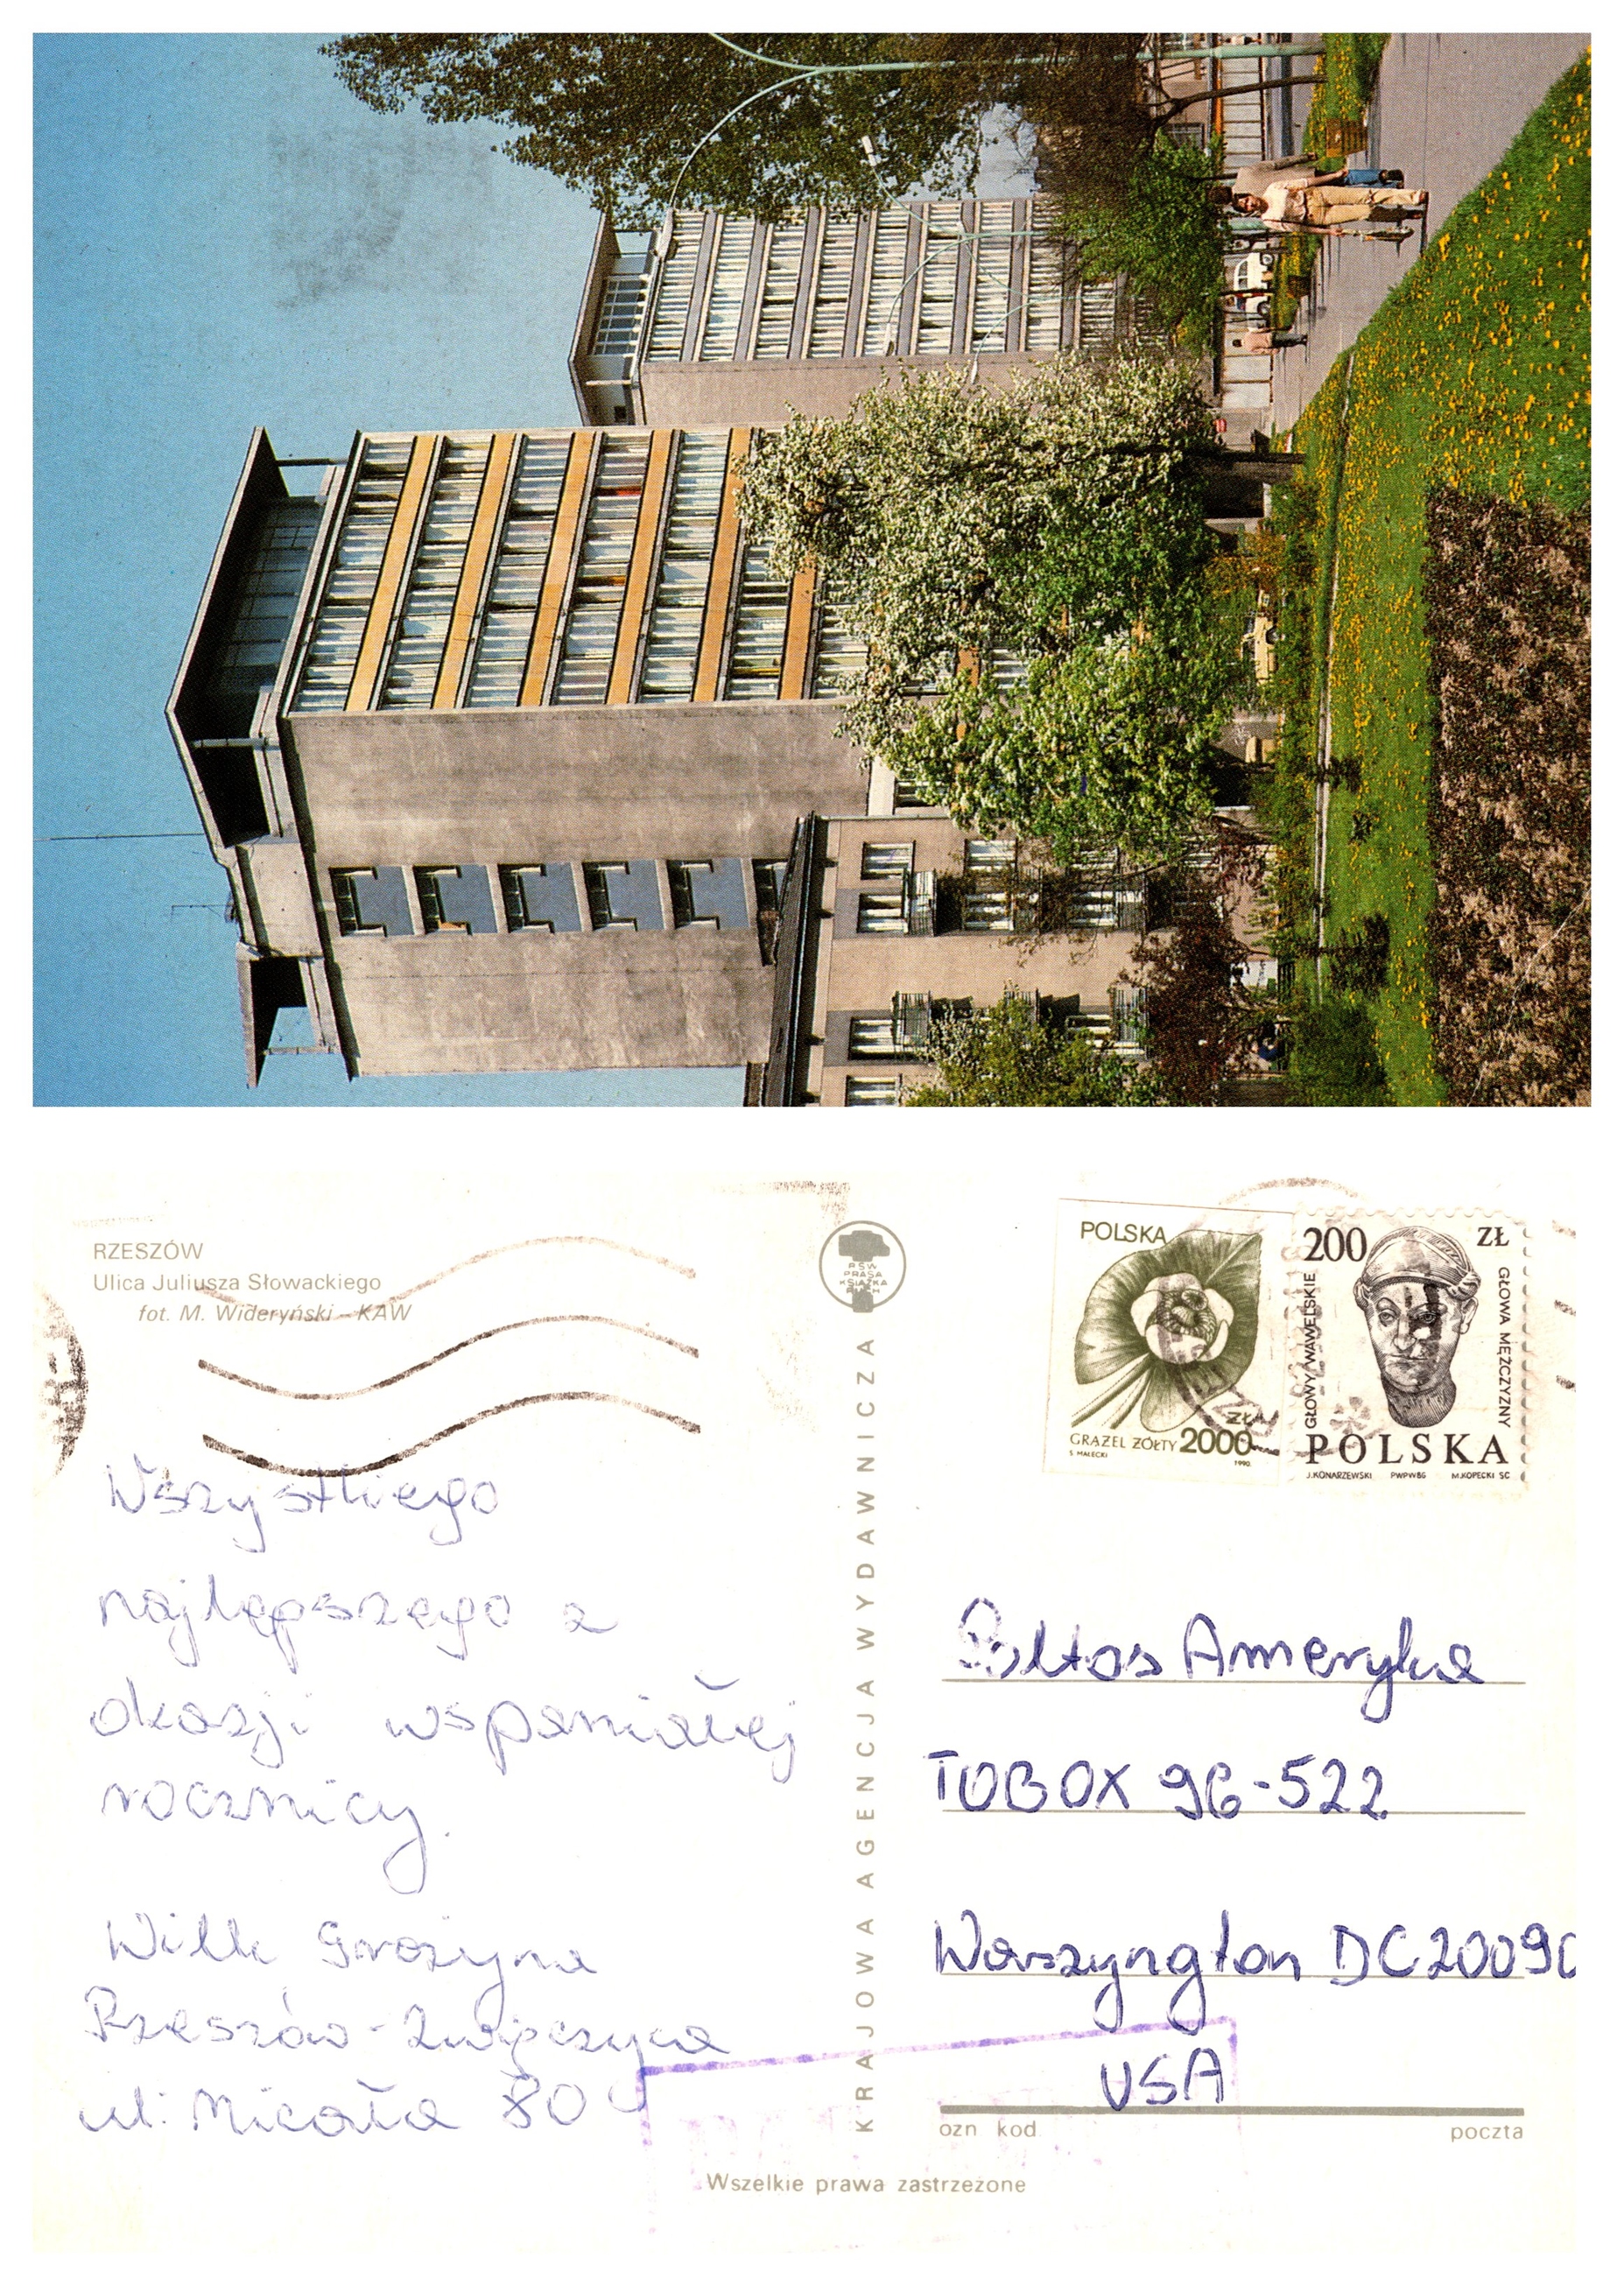 RZESZÓW
Ulica Juliusza Słowackiego
fot. M. Wideryński – KAW
Wszystkiego
najlepszego z
okazji wspaniałej
rocznicy.
Wilk Grażyna
Rzeszów-Zwięczyca
ul: Micała 80
RSW
PRASA
KSIĄŻKA
RUCH
KRAJOWA AGENCJA WYDAWNICZA
POLSKA
GRĄŻEL ŻÓŁTY
ZŁ
2000
S. MAŁECKI
1990
200 ZŁ
GŁOWY WAWELSKIE
GŁOWA MĘŻCZYZNY
POLSKA
J.KONARZEWSKI PWPW86 M.KOPECKI SC
Ameryka
TOBOX 96-522
Warszyngton DC 20090
USA
ozn kod
poczta
Wszelkie prawa zastrzeżone